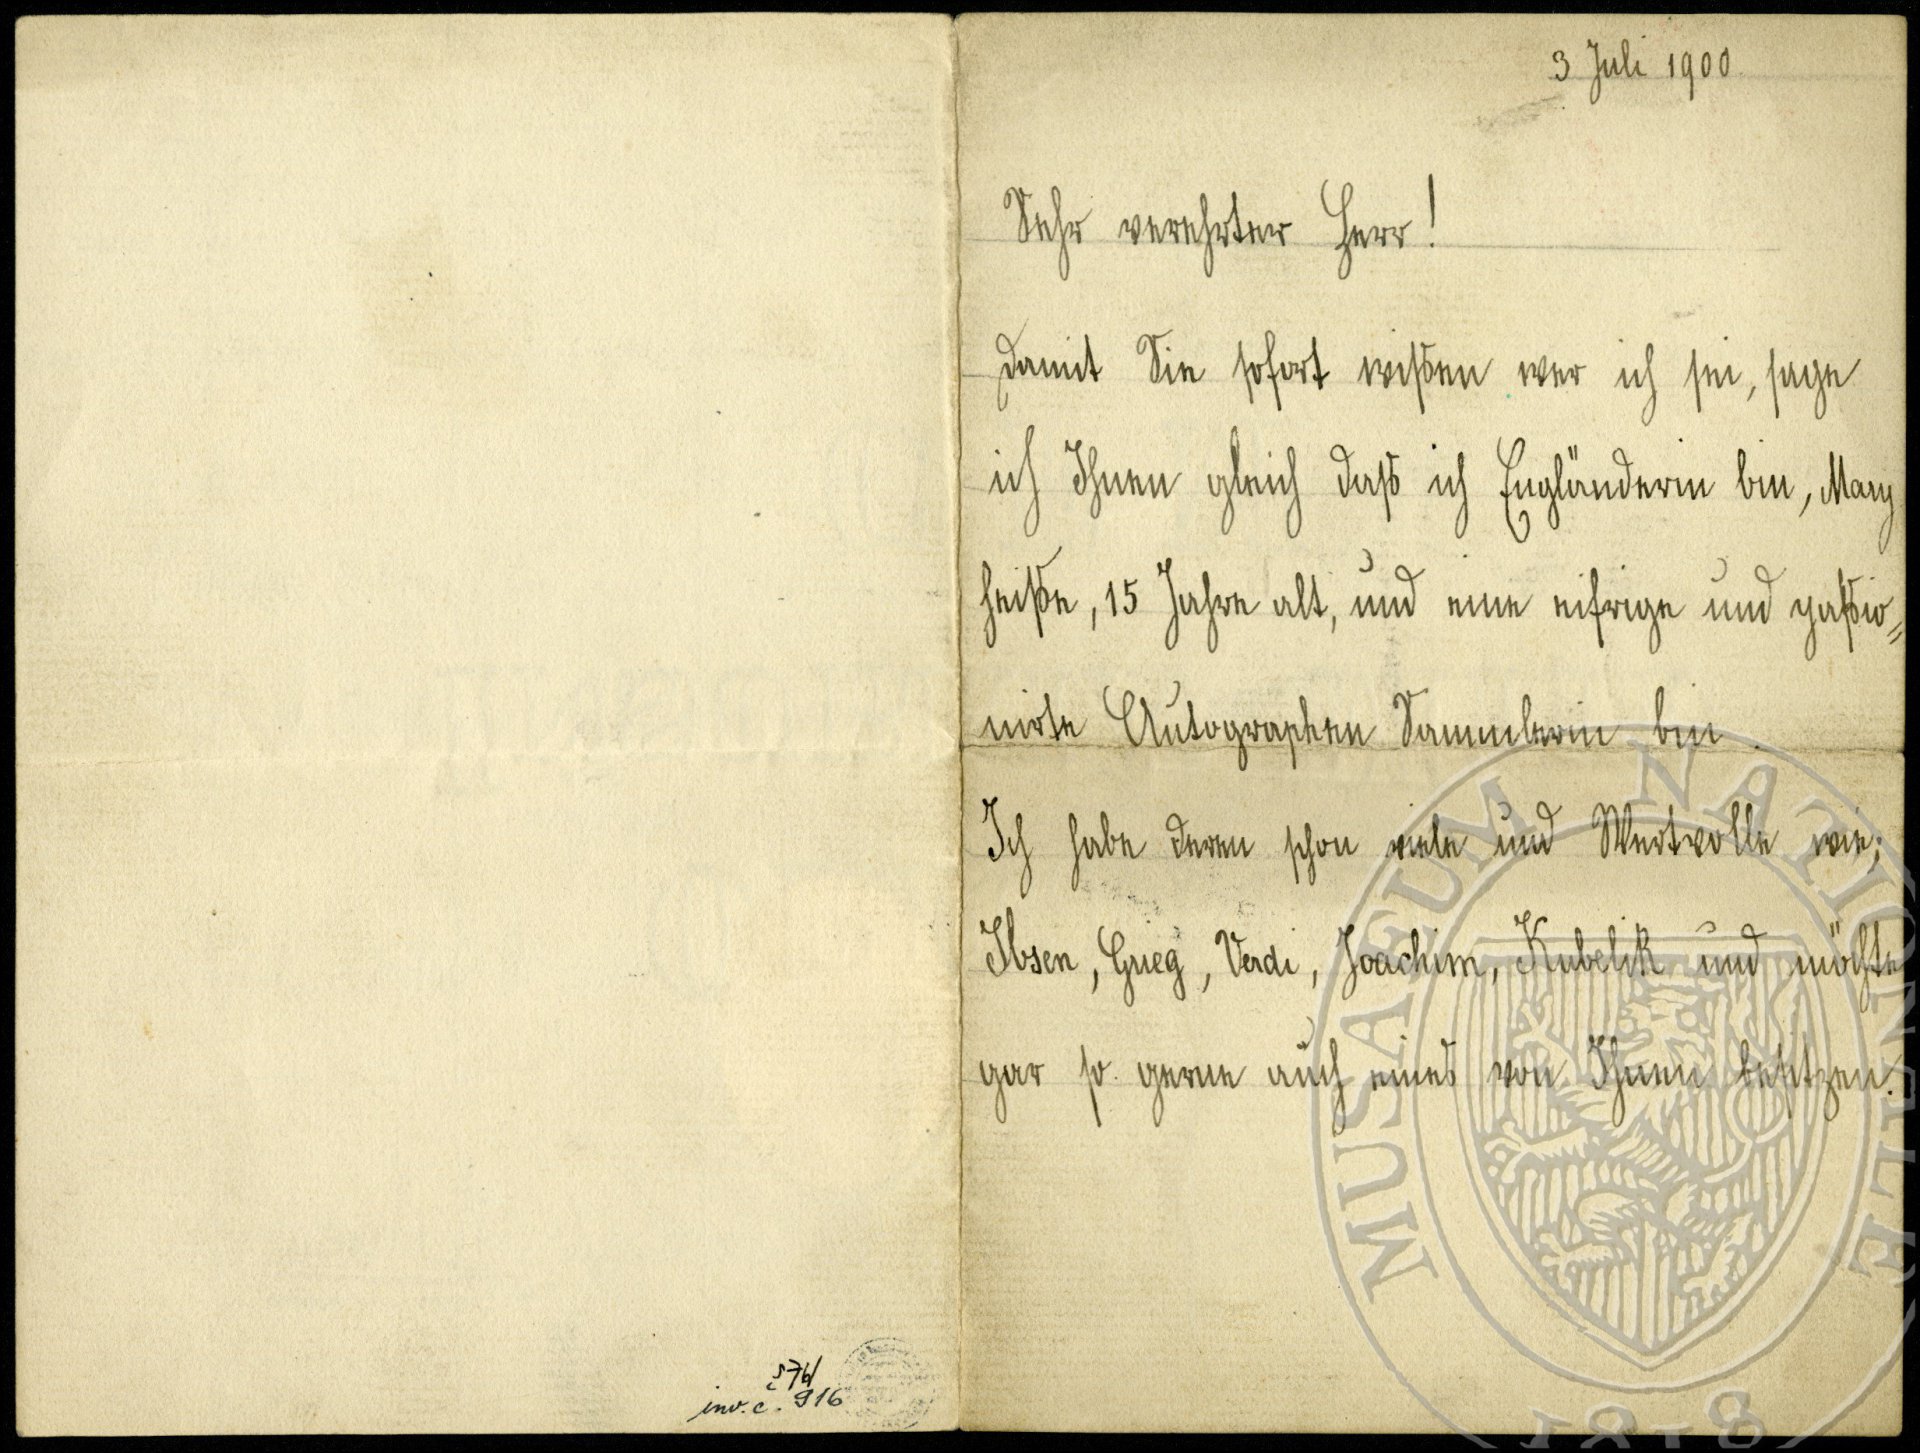 3 Juli 1900
Sehr verehrter Herr!
Damit Sie sofort wissen wer ich sei, sage
ich Ihnen gleich dass ich Engländerin bin, Mary
heisse, 15 Jahre alt, und eine eifrige und passio=
nirte Autographen Sammlerin bin.
Ich habe deren schon viele und Wertvolle wie;
Ibsen, Grieg, Verdi, Joachim, Kubelik und möchte
gar so gerne auch eines von Ihnen besitzen.
inv. c. 916
MUSAEUM NATIONALE
1818